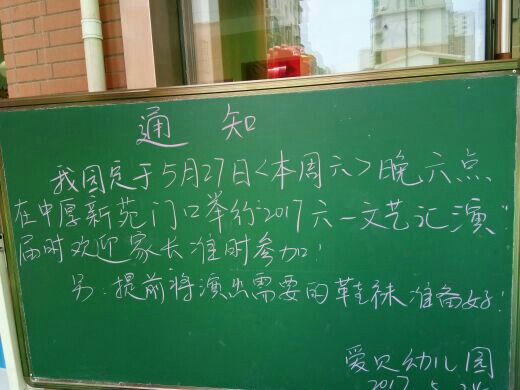 通知
我园定于5月27日<本周六>晚六点
在中厚新苑门口举行2017六一文艺汇演
届时欢迎家长准时参加!
另.提前将演出需要的鞋袜准备好!
爱贝幼儿园
2017